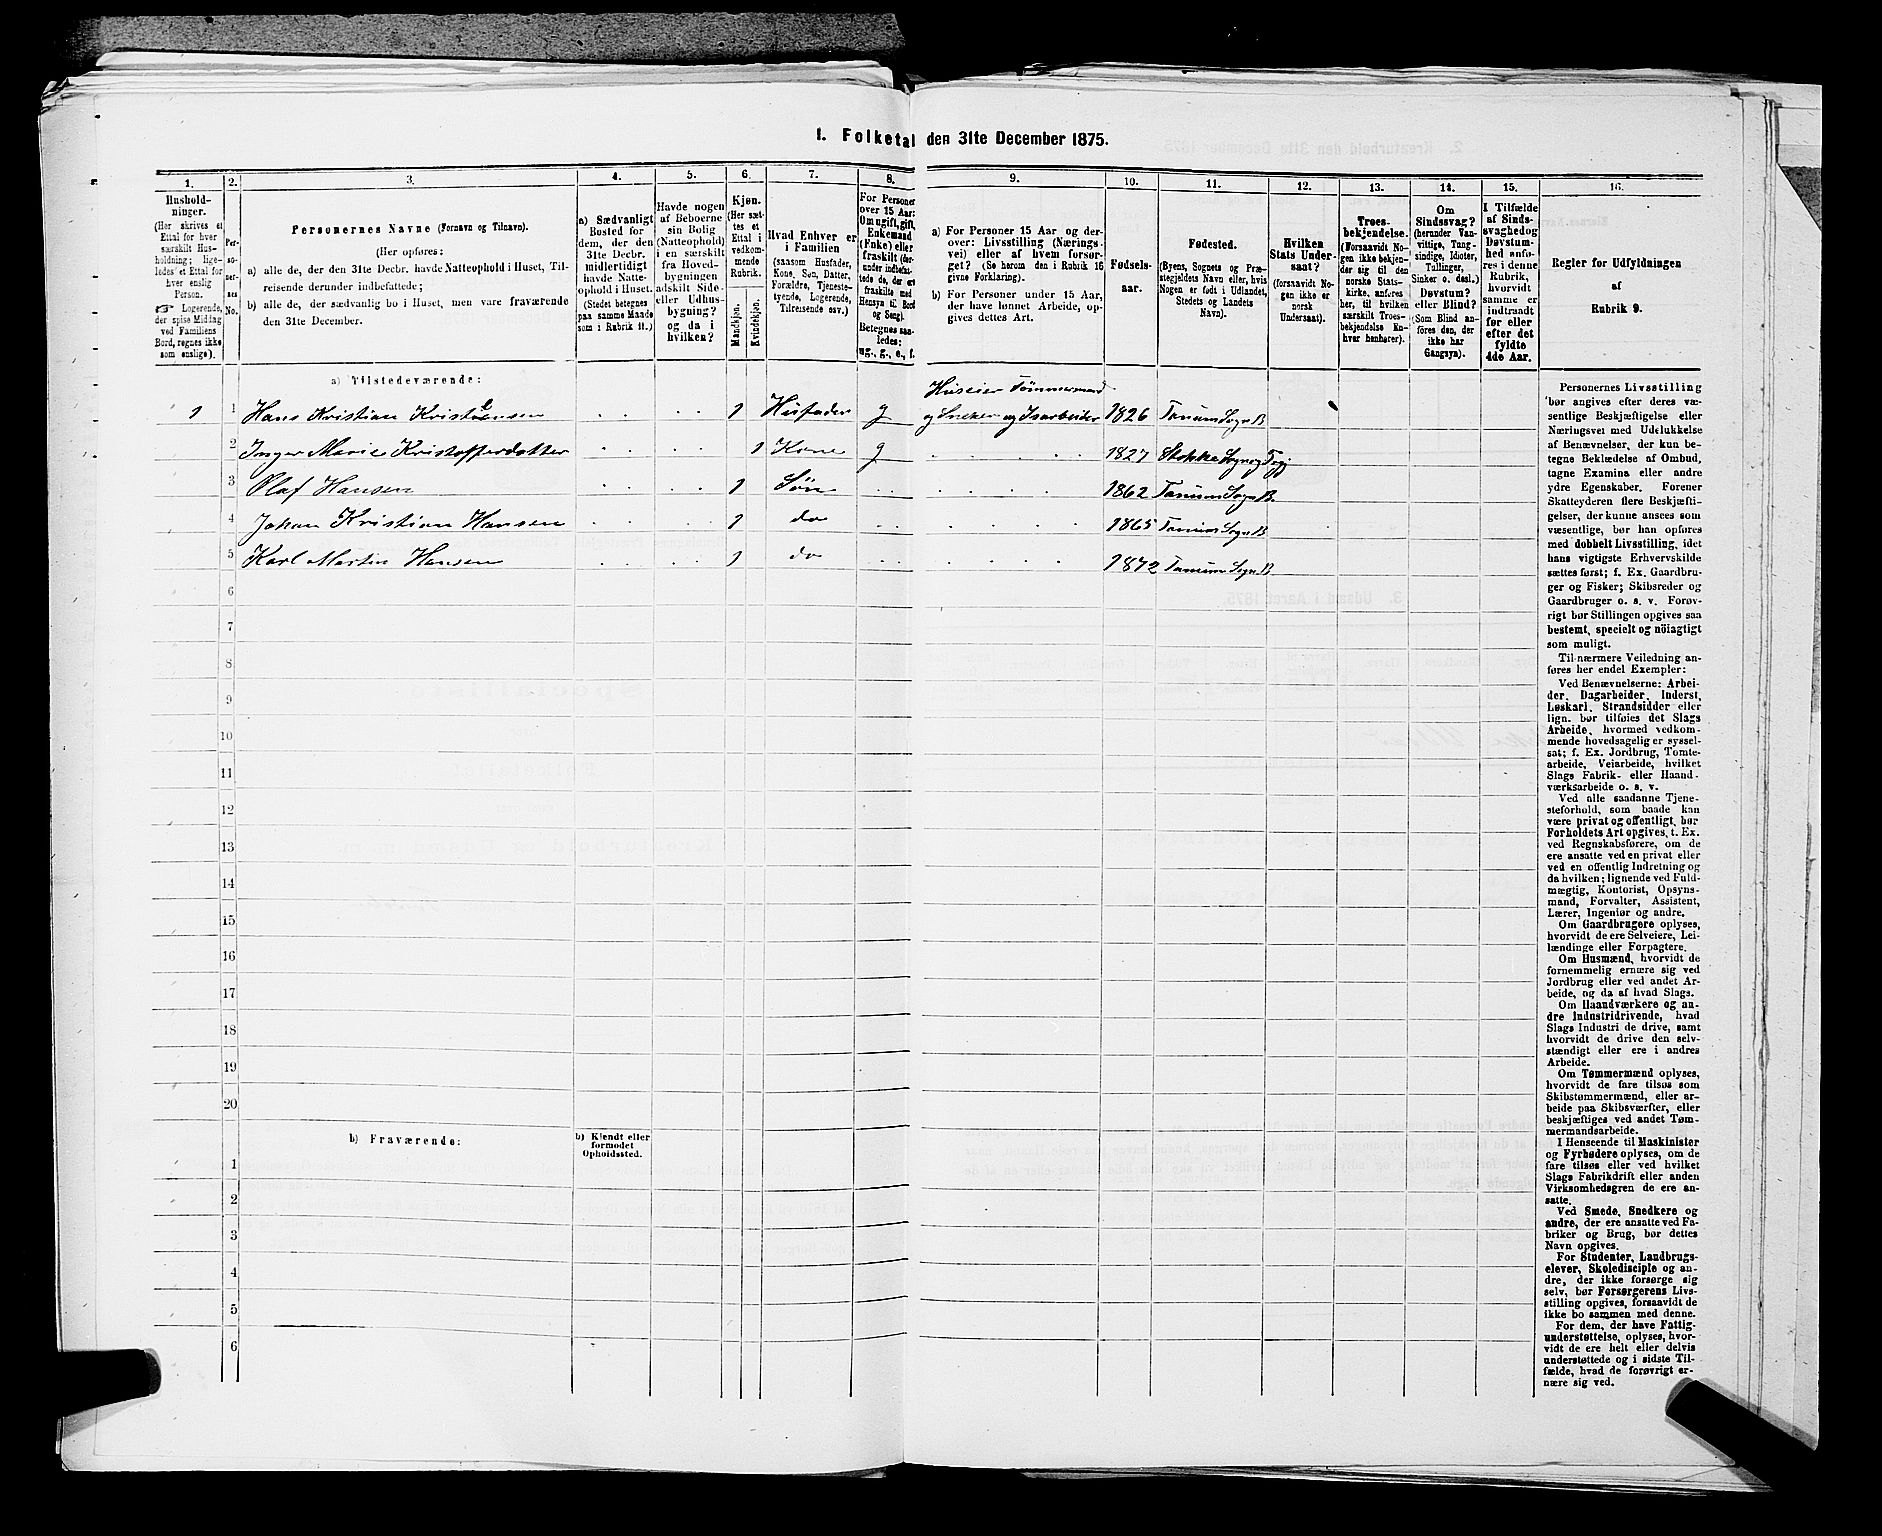 1. Folketal den 31te December 1875.
1.
2.
3.
4.
5.
6.
7.
8.
9.
10.
11.
12.
13.
14.
15.
16.
Hushold-
ninger.
(Her skrives et
Ettal for hver
særskilt Hus-
holdning; lige-
ledes et Ettal for
hver enslig
Person.
☞ Logerende,
der spise Middag
ved Familiens
Bord, regnes ikke
som enslige).
Per-
so-
ner-
nes
No.
Personernes Navne (Fornavn og Tilnavn).
(Her opføres:
a) alle de, der den 31te Decbr. havde Natteophold i Huset, Til-
reisende derunder indbefattede;
b) alle de, der sædvanlig bo i Huset, men vare fraværende
den 31te December.
a) Sædvanligt
Bosted for
dem, der den
31te Decbr.
midlertidigt
havde Natte-
ophold i Huset.
(Stedet betegnes
paa samme Maade
som i Rubrik 11.)
Havde nogen
af Beboerne
sin Bolig
(Natteophold)
i en særskilt
fra Hoved-
bygningen
adskilt Side-
eller Udhus-
bygning?
og da i
hvilken?
Kjøn.
(Her sæt-
tes et
Ettal i
vedkom-
mende
Rubrik.
Mandkjøn.
Kvindekjøn.
Hvad Enhver er
i Familien
(saasom Husfader,
Kone, Søn, Datter,
Forældre, Tjeneste-
tyende, Logerende,
Tilreisende osv.)
For Personer
over 15 Aar:
Om ugift, gift,
Enkemand
(Enke) eller
fraskilt (her-
under indbefat-
tede de, der ere
fraskilte med
Hensyn til Bord
og Seng).
Betegnes saa-
ledes:
ug., g., e., f.
a) For Personer 15 Aar og der-
over: Livsstilling (Nærings-
vei) eller af hvem forsør-
get? (Se herom den i Rubrik 16
givne Forklaring).
b) For Personer under 15 Aar,
der have lønnet Arbeide, op-
gives dettes Art.
Fødsels-
aar.
Fødested.
(Byens, Sognets og Præ-
stegjeldets Navn eller, hvis
Nogen er født i Udlandet,
Stedets og Landets
Navn).
Hvilken
Stats Under-
saat?
(forsaavidt No-
gen ikke er
norsk
Undersaat).
Troes-
bekjendelse.
(Forsaavidt No-
gen ikke bekjen-
der sig til den
norske Stats-
kirke, anføres
her, til hvilken
særskilt Troes-
bekjendelse En-
hver henhører).
Om
Sindssvag?
(herunder Van-
vittige, Tung-
sindige, Idioter,
Tullinger,
Sinker o. desl.)
Døvstum?
eller Blind?
(Som Blind an-
føres den, der
ikke har
Gangsyn).
I Tilfælde
af Sinds-
svaghed og
Døvstum-
hed anfø-
res i denne
Rubrik,
hvorvidt
samme er
indtraadt
før eller
efter det
fyldte
4de Aar.
Regler for Udfyldningen
af
Rubrik 9.
a) Tilstedeværende:
Huseier Tømmermand
1 1 Hans Kristian Kristiansen 1 Husfader g og Snekker og Isarbeider 1826 Tanum Sogn B
2 Inger Marie Kristofferdatter 1 Kone g 1827 Stokke Sogn og
3 Olaf Hansen 1 Søn 1862 Tanum Sogn B.
4 Johan Kristian Hansen 1 do 1865 Tanum Sogn B
5 Karl Martin Hansen 1 do 1872 Tanum Sogn B
6
7
8
9
10
11
12
13
14
15
16
17
18
19
20
b) Fraværende:
b) Kjendt eller
formodet
Opholdssted.
1
2
3
4
5
6
Personernes Livsstilling
bør angives efter deres væ-
sentlige Beskjæftigelse eller
Næringsvei med Udelukkelse
af Benævnelser, der kun be-
tegne Beklædelse af Ombud,
tagne Examina eller andre
ydre Egenskaber. Forener
Skatteyderen flere Beskjæfti-
gelser, der kunne ansees som
væsentlige, bør han opføres
med dobbelt Livsstilling, idet
hans vigtigste Erhvervskilde
sættes først; f. Ex. Gaardbru-
ger og Fisker; Skibsreder og
Gaardbruger o. s. v. Forøv-
rigt bør Stillingen opgives saa
bestemt, specielt og nöiagtigt
som muligt.
Til nærmere Veiledning an-
føres her endel Exempler:
Ved Benævnelserne: Arbei-
der, Dagarbeider, Inderst,
Løskarl, Strandsidder eller
lign. bør tilføies det Slags
Arbeide, hvormed vedkom-
mende hovedsagelig er syssel-
sat; f. Ex. Jordbrug, Tomte-
arbeide, Veiarbeide, hvilket
Slags Fabrik- eller Haand-
værksarbeide o. s. v.
Ved alle saadanne Tjene-
steforhold, som baade kan
være privat og offentligt, bør
Forholdets Art opgives, t. Ex.
ved Regnskabsførere, om de
ere ansatte ved en privat eller
ved en offentlig Indretning og
da hvilken; lignende ved Fuld-
mægtig, Kontorist, Opsyns-
mand, Forvalter, Assistent,
Lærer, Ingeniør og andre.
Om Gaardbrugere oplyses,
hvorvidt de ere Selveiere, Lei-
lændinge eller Forpagtere.
Om Husmænd, hvorvidt de
fornemmelig ernære sig ved
Jordbrug eller ved andet Ar-
beide, og da af hvad Slags.
Om Haandværkere og an-
dre Industridrivende, hvad
Slags Industri de drive, samt
hvorvidt de drive den selv-
stændigt eller ere i andres
Arbeide.
Om Tømmermænd oplyses,
hvorvidt de fare tilsøs som
Skibstømmermænd, eller ar-
beide paa Skibsværfter, eller
beskjæftiges ved andet Tøm-
mermandsarbeide.
I Henseende til Maskinister
og Fyrbødere oplyses, om de
fare tilsøs eller ved hvilket
Slags Fabrikdrift eller anden
Virksomhedsgren de ere an-
satte.
Ved Smede, Snedkere og
andre, der ere ansatte ved Fa-
briker og Brug, bør dettes
Navn opgives.
For Studenter, Landbrugs-
elever, Skoledisciple og an-
dre, der ikke forsørge sig
selv, bør Forsørgerens Livs-
stilling opgives, forsaavidt de
ikke bo sammen med denne.
For dem, der have Fattig-
understøttelse, oplyses, hvor-
vidt de ere helt eller delvis
understøttede og i sidste Til-
fælde, hvad de forøvrigt er-
nære sig ved.